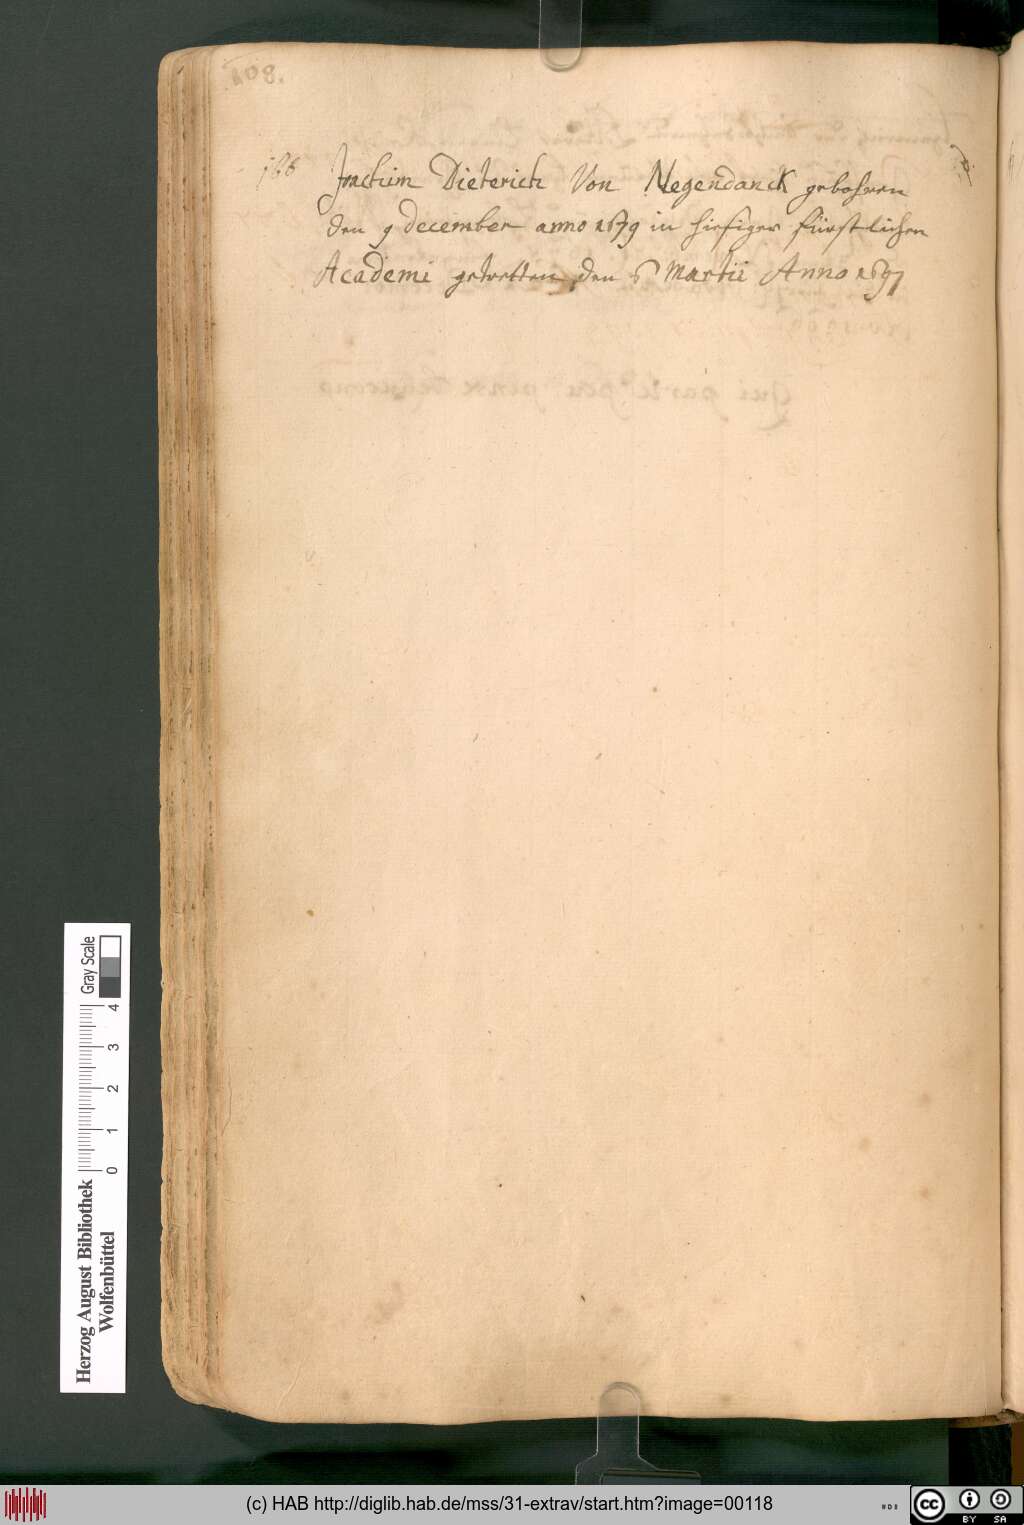 108.
Joachim Dieterich Von Negendanck gebohren
den 9 december anno 1679 in hiesiger fürstlichen
Academi getretten den 6 Martii Anno 1697
Gray Scale
0 1 2 3 4
Herzog August Bibliothek
Wolfenbüttel
(c) HAB http://diglib.hab.de/mss/31-extrav/start.htm?image=00118
cc BY SA